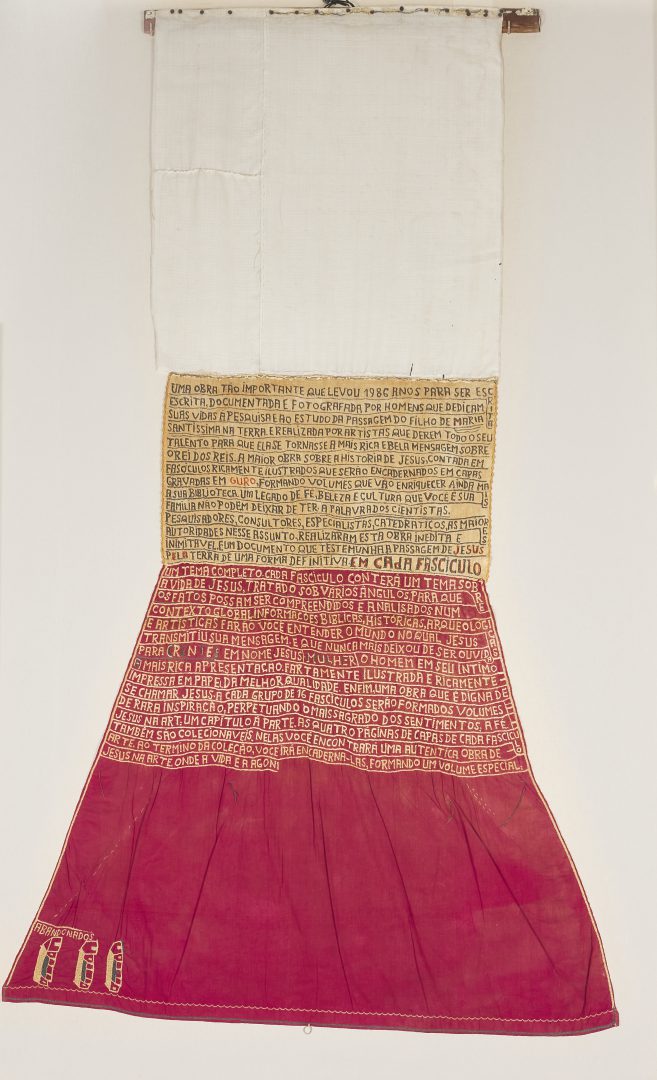 UMA OBRA TÃO IMPORTANTE QUE LEVOU 1986 ANOS PARA SER ESC
ESCRITA, DOCUMENTADA E FOTOGRAFADA POR HOMENS QUE DEDICAM
SUAS VIDAS A PESQUISA E AO ESTUDO DA PASSAGEM DO FILHO DE MARIA
SANTISSIMA NA TERRA. E REALIZADA POR ARTISTAS QUE DEREM TODO O SEU
TALENTO PARA QUE ELA SE TORNASSE A MAIS RICA E BELA MENSAGEM SOBRE
O REI DOS REIS. A MAIOR OBRA SOBRE A HISTORIA DE JESUS, CONTADA EM
FASOCULOS RICAMENTE ILUSTRADOS QUE SERÃO ENCADERNADOS EM CAPAS
GRAVADAS EM OURO, FORMANDO VOLUMES QUE VÃO ENRIQUECER AINDA MA
A SUA BIBLIOTECA. UM LEGADO DE FE, BELEZA E CULTURA QUE VOCE E SUA
FAMILIA NÃO PODEM DEIXAR DE TER. A PALAVRA DOS CIENTISTAS.
PESQUISADORES, CONSULTORES, ESPECIALISTAS, CATEDRATICOS, AS MAIOR
AUTORIDADES NESSE ASSUNTO. REALIZARAM ESTA OBRA INEDITA E
INIMITAVEL. E UM DOCUMENTO QUE TESTEMUNHA A PASSAGEM DE JESUS
PELA TERRA DE UMA FORMA DEFINITIVA. EM CAdA FASCICULO
UM TEMA COMPLETO. CADA FASCICULO CONTERÁ UM TEMA SOB
A VIDA DE JESUS, TRATADO SOB VARIOS ANGULOS, PARA QUE
OS FATOS POSSAM SER COMPREENDIDOS E ANALISADOS NUM
CONTEXTO GLOBAL. INFORMAÇÕES BIBLICAS, HISTORICAS, ARQUEOLOGICAS
E ARTISTICAS FARÃO VOCE ENTENDER O MUNDO NO QUAL JESUS
TRANSMITIU SUA MENSAGEM, E QUE NUNCA MAIS DEIXOU DE SER OUVIDA
PARA CRENTES EM NOME JESUS MULHER, O HOMEM EM SEU INTIMO
A MAIS RICA APRESENTACAO. FARTAMENTE ILUSTRADA E RICAMENTE
IMPRESSA EM PAPEL DA MELHOR QUALIDADE. ENFIM, UMA OBRA QUE E DIGNA DE
SE CHAMAR JESUS. A CADA GRUPO DE 16 FASCÍCULOS SERÃO FORMADOS VOLUMES
DE RARA INSPIRACÃO, PERPETUANDO O MAIS SAGRADO DOS SENTIMENTOS, A FÉ
JESUS NA ART. UM CAPITULO À PARTE. AS QUATRO PÁGINAS DE CAPAS DE CADA FASCICU
TAMBÉM SÃO COLECIONÁVEIS. NELAS VOCÊ ENCONTRARA UMA AUTENTICA OBRA DE
ARTE. AO TERMINO DA COLEÇÃO, VOCE IRÁ ENCADERNA-LAS, FORMANDO UM VOLUME ESPECIAL:
JESUS NA ARTE ONDE A VIDA E A AGONI
ABANDONADOS